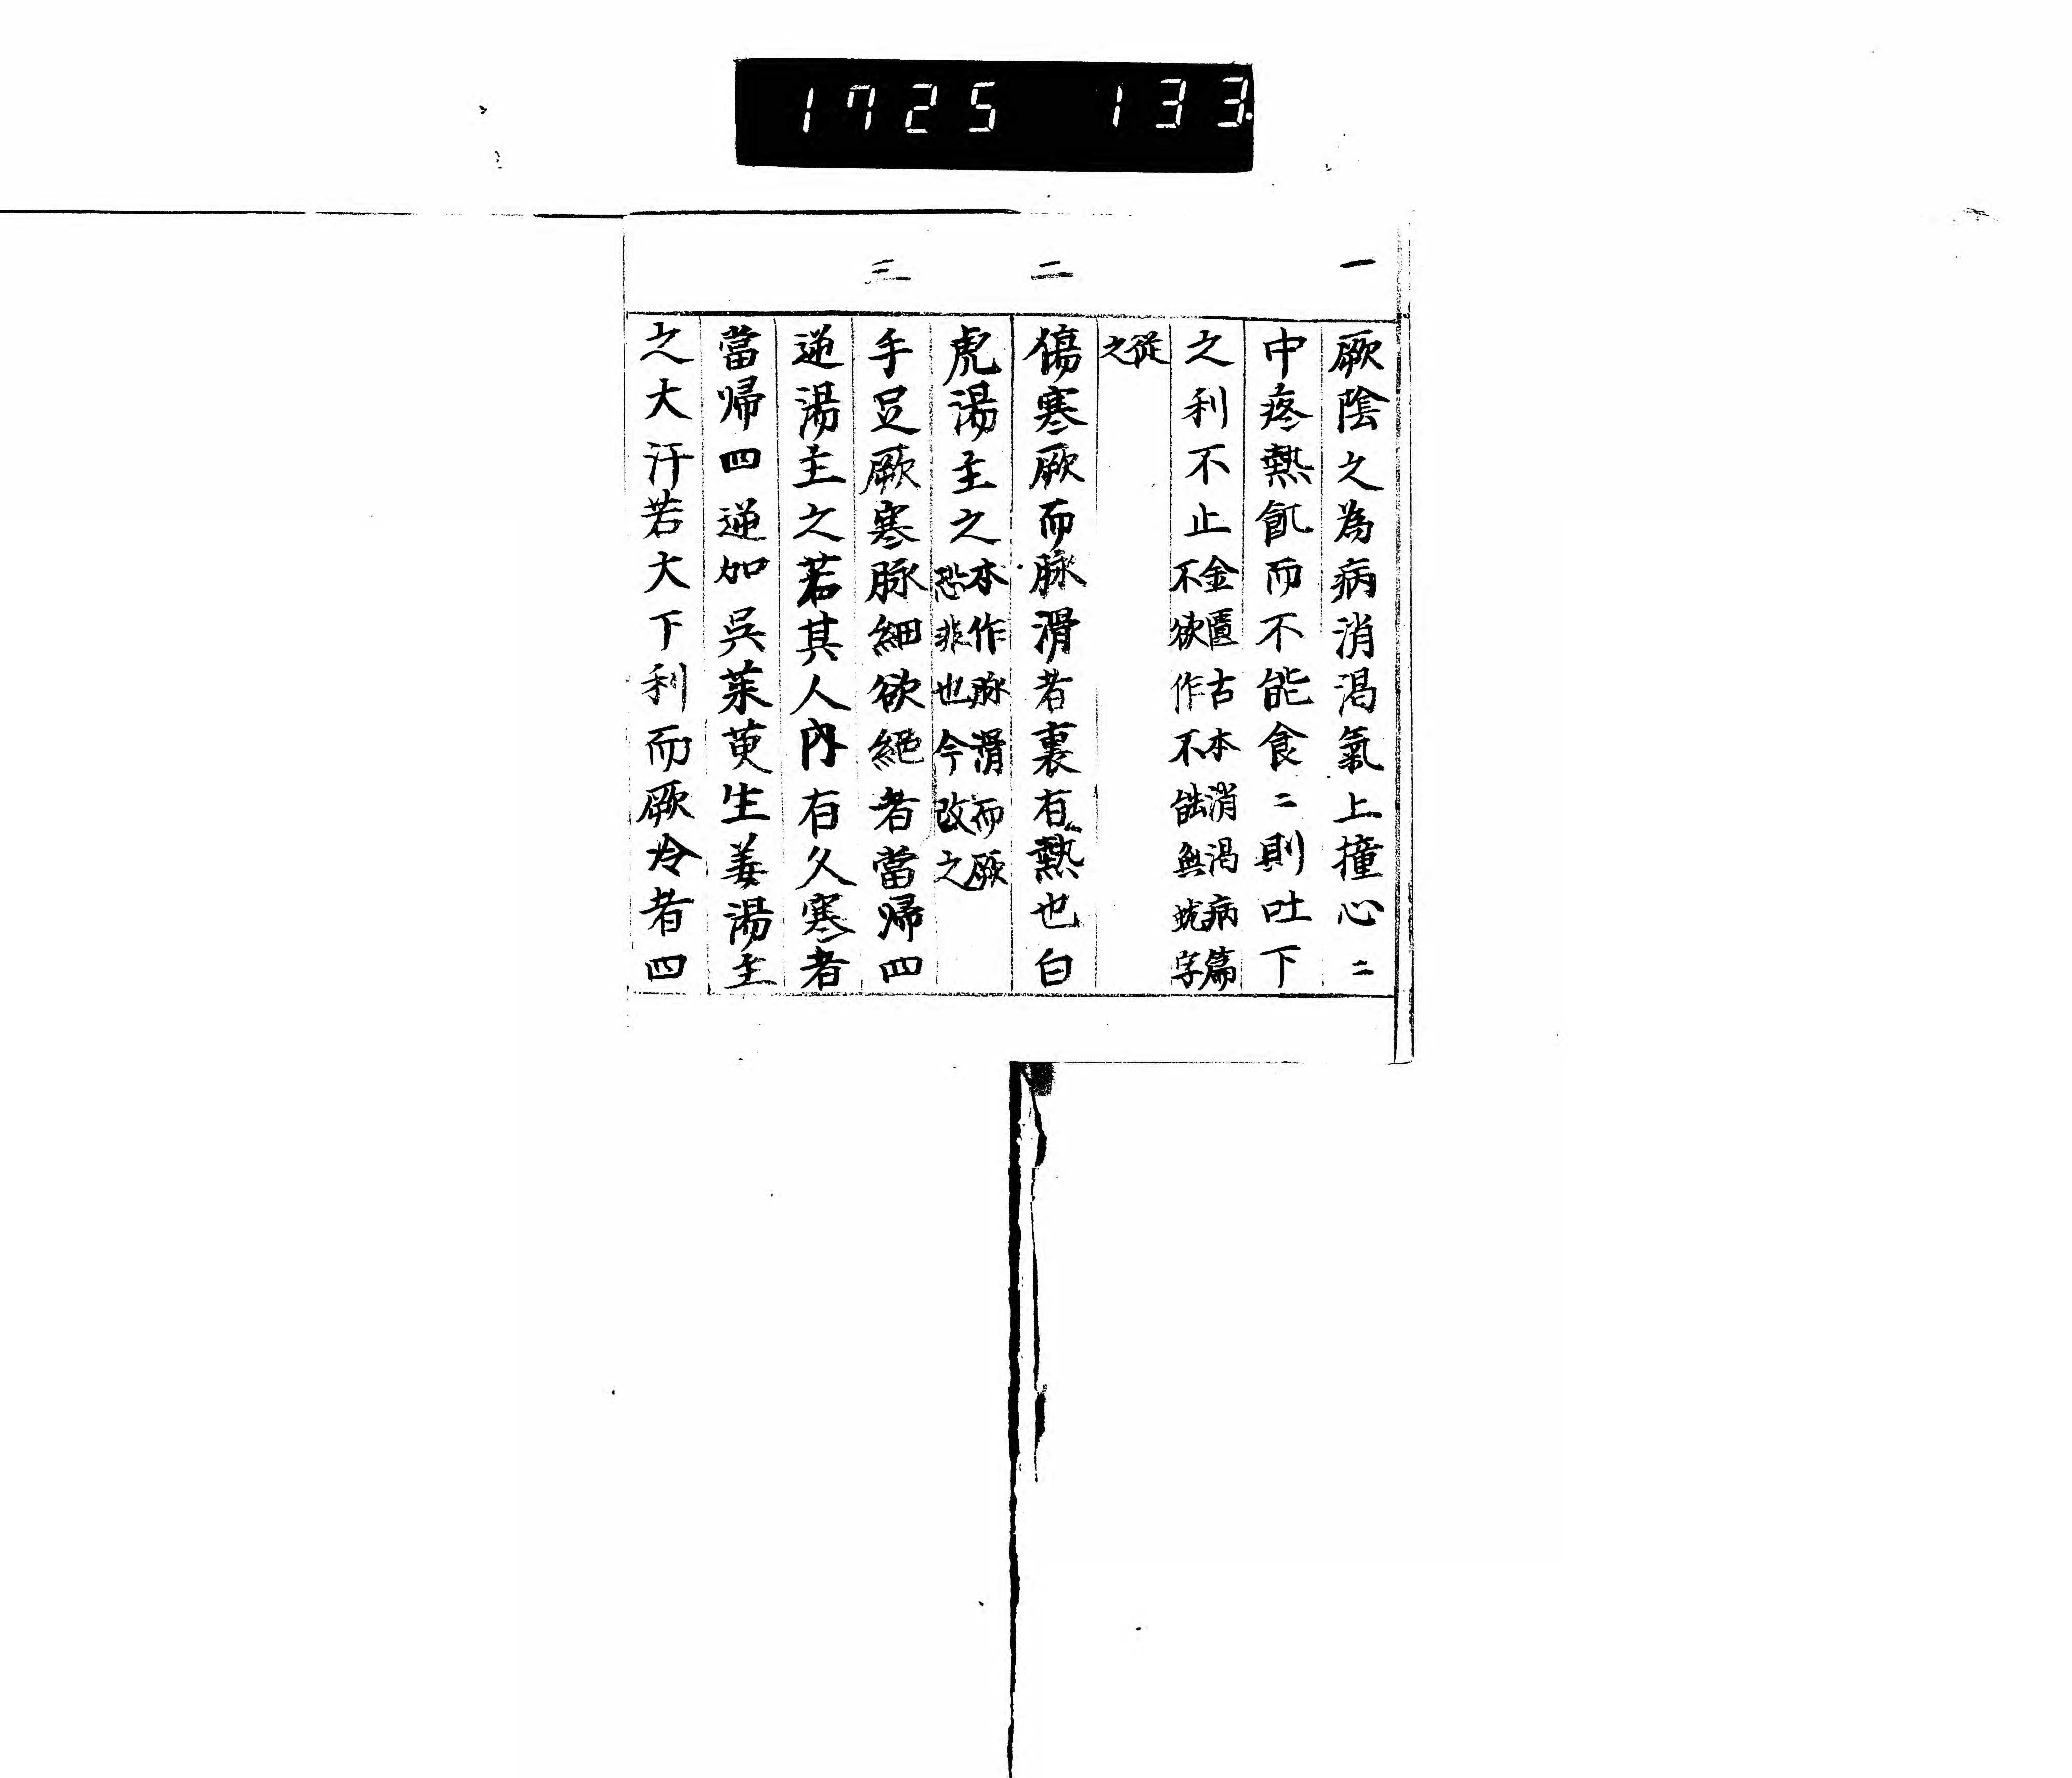 1725 133
一
二
三
厥陰之為病消渴氣上撞心〻
中疼熱飢而不能食〻則吐下
之利不止金匱古本消渴病篇
不欲作不能無蚘字
從
之
傷寒厥而脉滑者裏有熱也白
虎湯主之本作脉滑而厥
恐非也今改之
手足厥寒脉細欲絕者當帰四
逆湯主之若其人內有久寒者
當帰四逆加吳茱萸生姜湯主
之大汗若大下利而厥冷者四